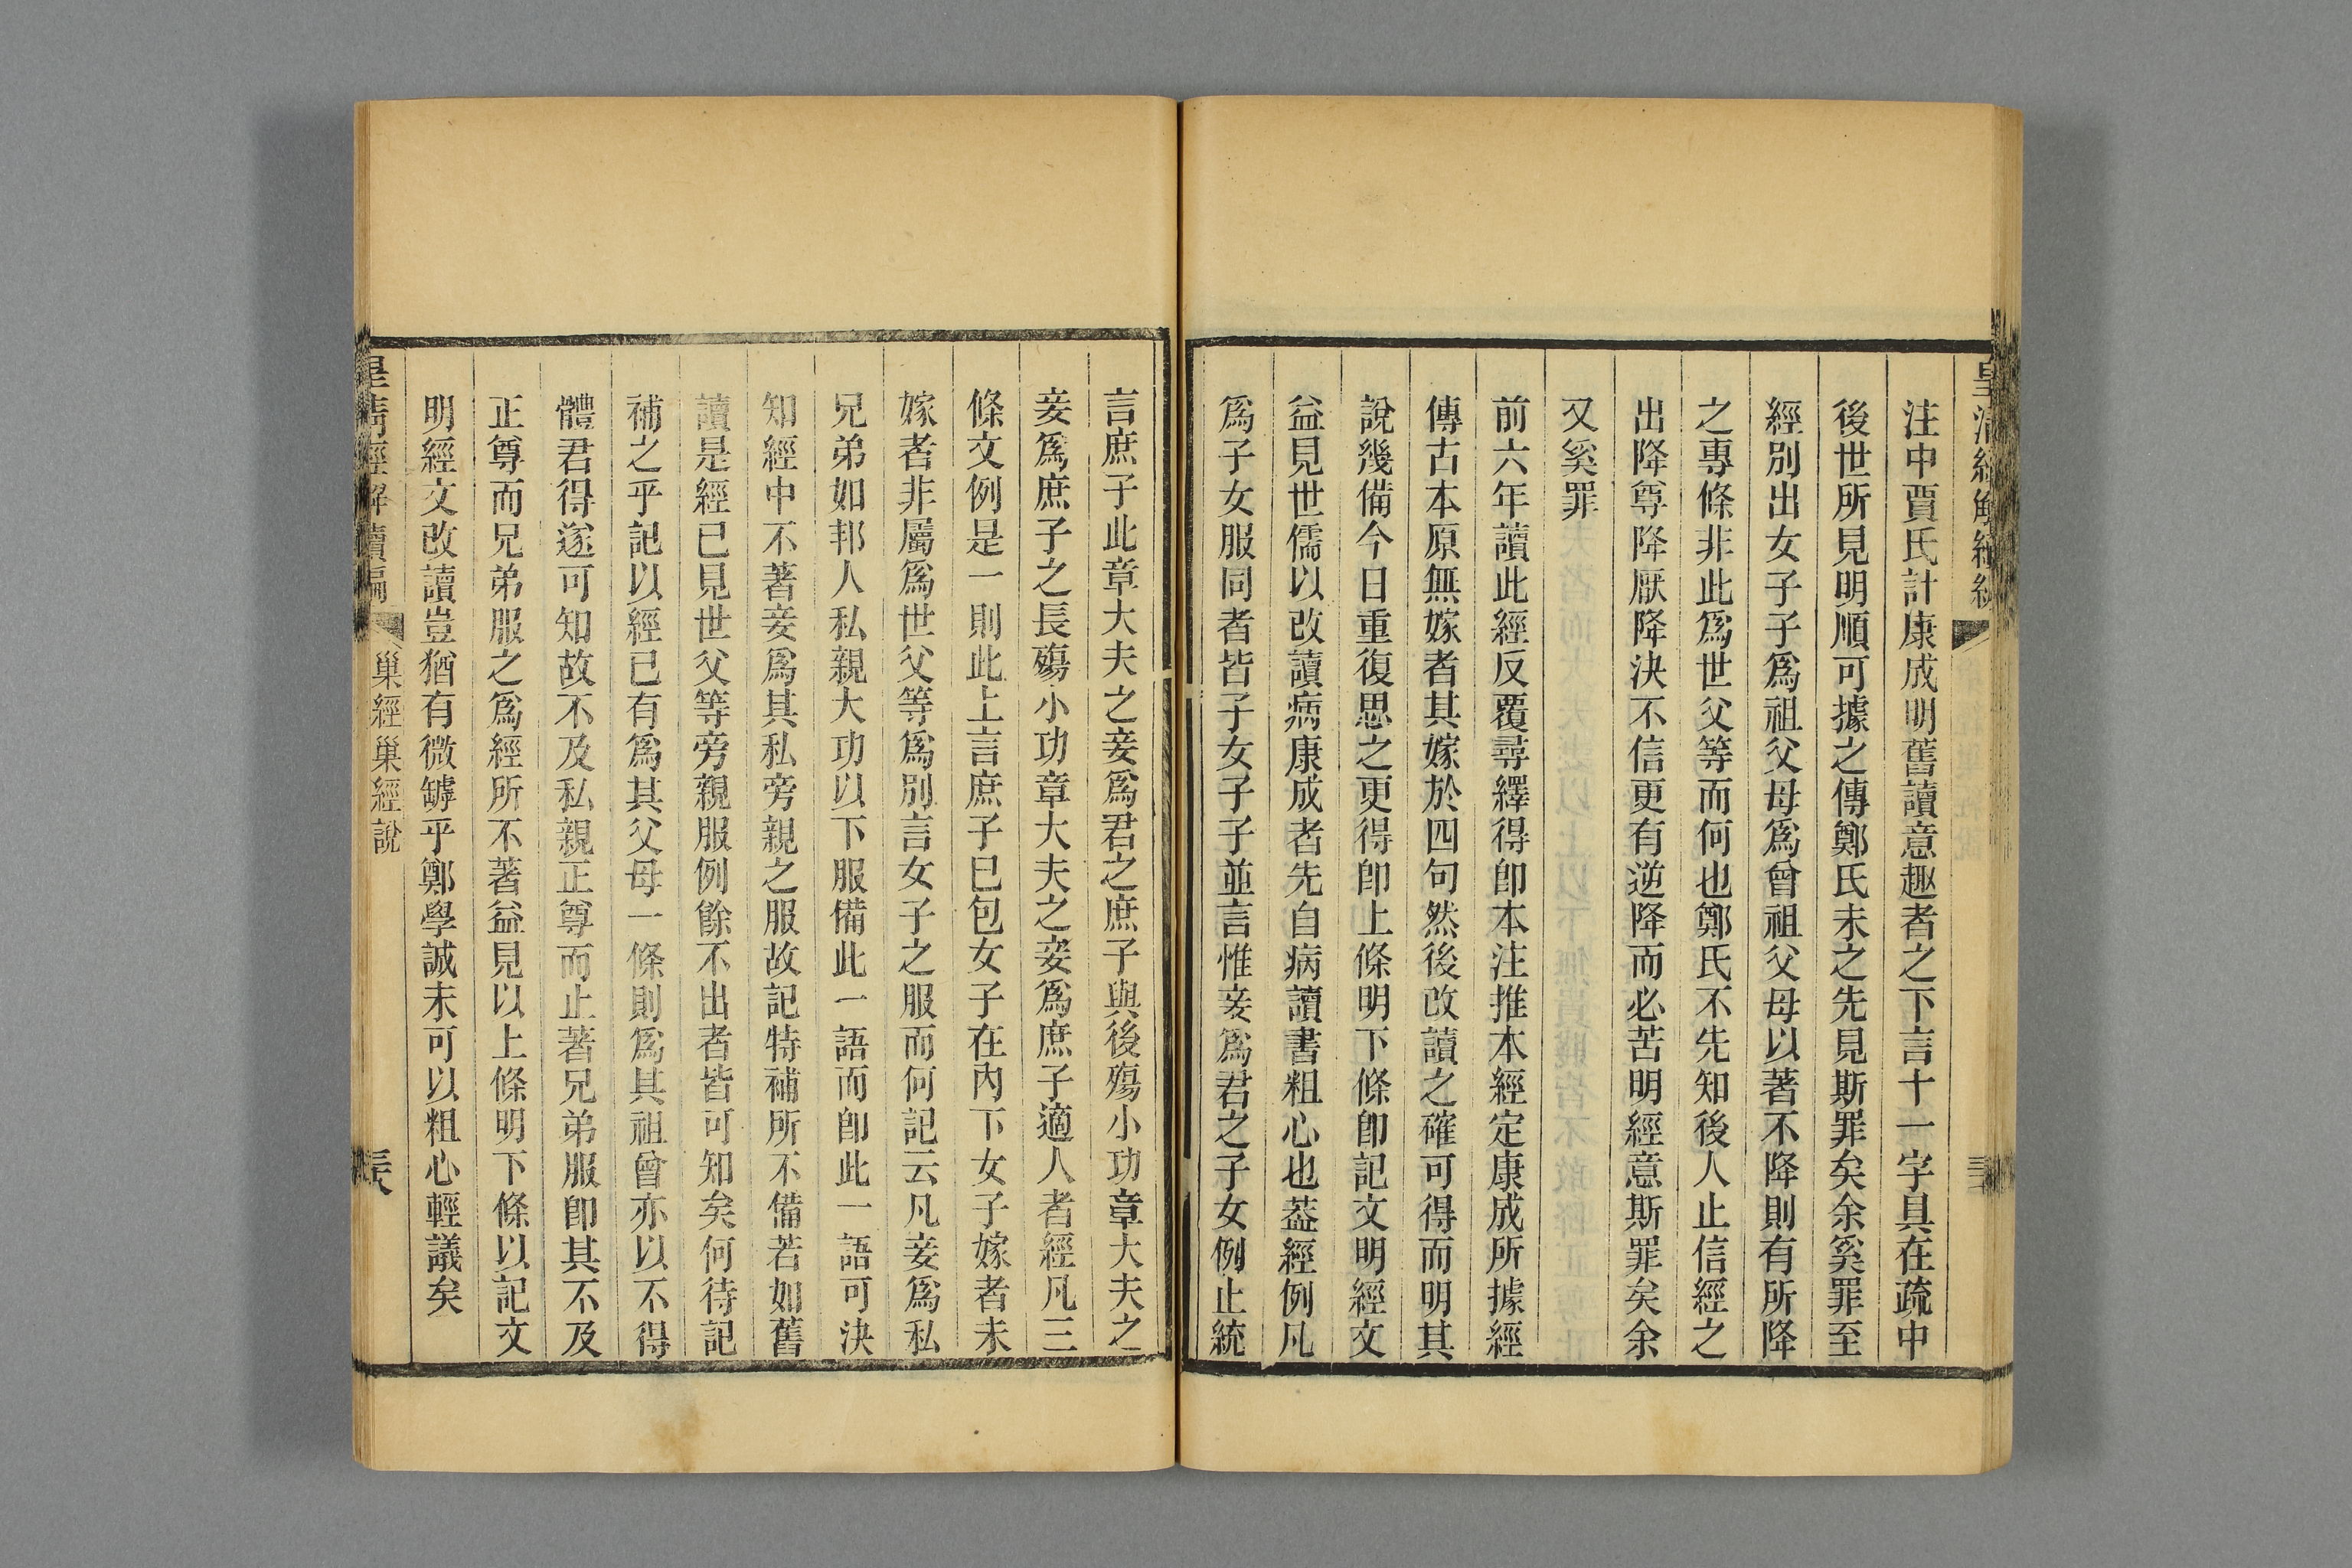 注中賈氏計康成明舊讀意趣者之下言十一字具在疏中
後世所見明順可據之傳鄭氏未之先見斯罪矣余奚罪至
經別出女子子爲祖父母爲曾祖父母以著不降則有所降
之專條非此爲世父等而何也鄭氏不先知後人止信經之
出降尊降厭降決不信更有逆降而必苦明經意斯罪矣余
又奚罪
前六年讀此經反覆尋繹得卽本注推本經定康成所據經
傳古本原無嫁者其嫁於四句然後改讀之確可得而明其
說幾備今日重復思之更得卽上條明下條卽記文明經文
益見世儒以改讀病康成者先自病讀書粗心也葢經例凡
爲子女服同者皆子女子子並言惟妾爲君之子女例止統
言庶子此章大夫之妾爲君之庶子與後殤小功章大夫之
妾爲庶子之長殤小功章大夫之妾爲庶子適人者經凡三
條文例是一則此上言庶子已包女子在內下女子嫁者未
嫁者非屬爲世父等爲別言女子之服而何記云凡妾爲私
兄弟如邦人私親大功以下服備此一語而卽此一語可決
知經中不著妾爲其私旁親之服故記特補所不備若如舊
讀是經已見世父等旁親服例餘不出者皆可知矣何待記
補之乎記以經已有爲其父母一條則爲其祖曾亦以不得
體君得遂可知故不及私親正尊而止著兄弟服卽其不及
正尊而兄弟服之爲經所不著益見以上條明下條以記文
明經文改讀豈猶有微罅乎鄭學誠未可以粗心輕議矣
皇淸經解續編 巢經巢經說